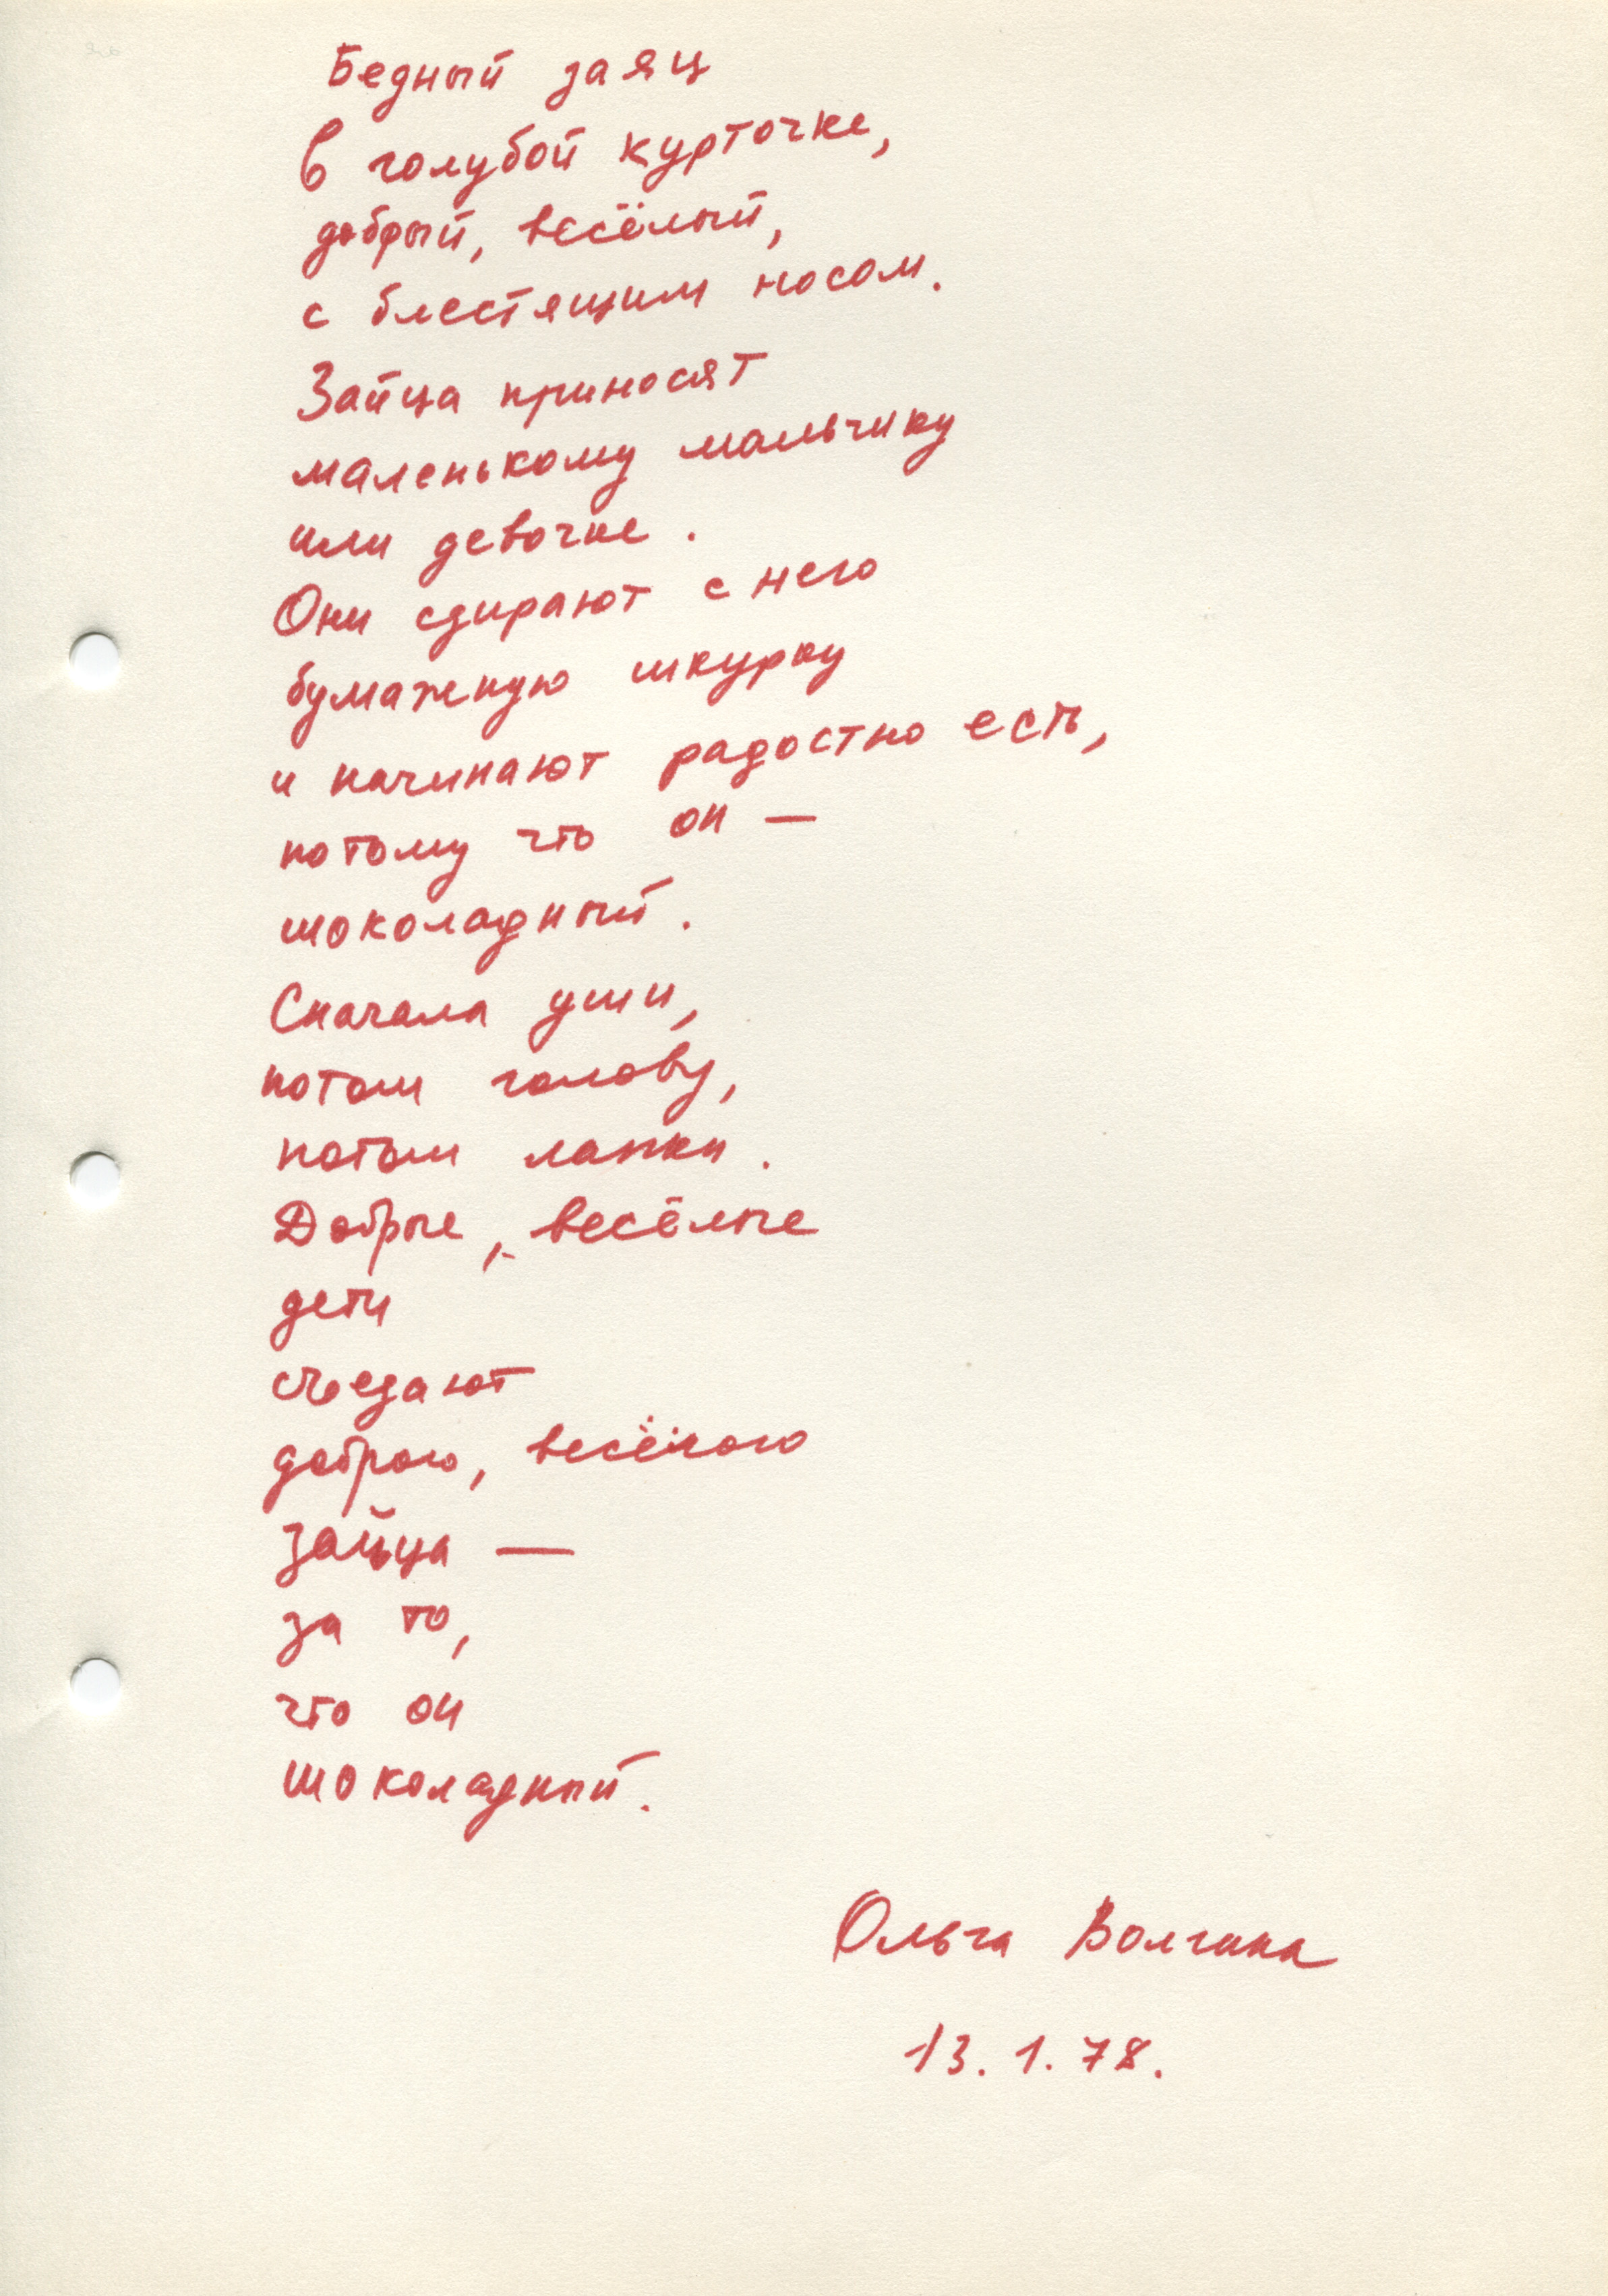 Бедный заяц
в голубой курточке,
добрый, весёлый,
с блестящим носом.
Зайца приносят
маленькому мальчику
или девочке.
Они сдирают с него
бумажную шкурку
и начинают радостно есть,
потому что он —
шоколадный.
Сначала уши,
потом голову,
потом лапки.
Добрые, весёлые
дети
съедают
доброго, весёлого
зайца —
за то,
что он
шоколадный.
Ольга Волгина
13.1.78.